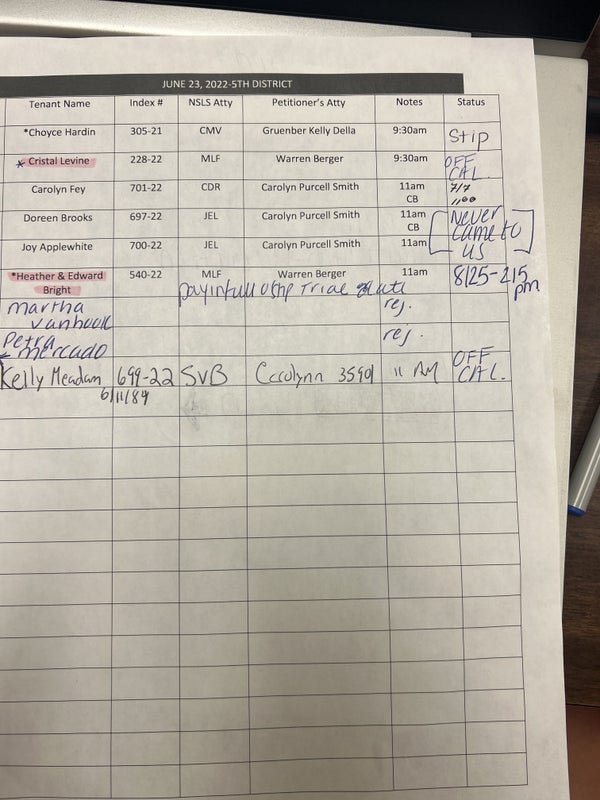 JUNE 23, 2022-5TH DISTRICT
Tenant Name Index # NSLS Atty Petitioner's Atty Notes Status
*Choyce Hardin 305-21 CMV Gruenber Kelly Della 9:30am Stip
* Cristal Levine 228-22 MLF Warren Berger 9:30am OFF CAL.
Carolyn Fey 701-22 CDR Carolyn Purcell Smith 11am CB 7/7 11:00
Doreen Brooks 697-22 JEL Carolyn Purcell Smith 11am CB [Never came to us]
Joy Applewhite 700-22 JEL Carolyn Purcell Smith 11am
*Heather & Edward Bright 540-22 MLF Warren Berger 11am 8/25-215 pm
pay in full Trial
martha vanhook rej.
Petra mercado rej.
Kelly Meadam 699-22 SVB 11 AM OFF CAL.
6/11/84